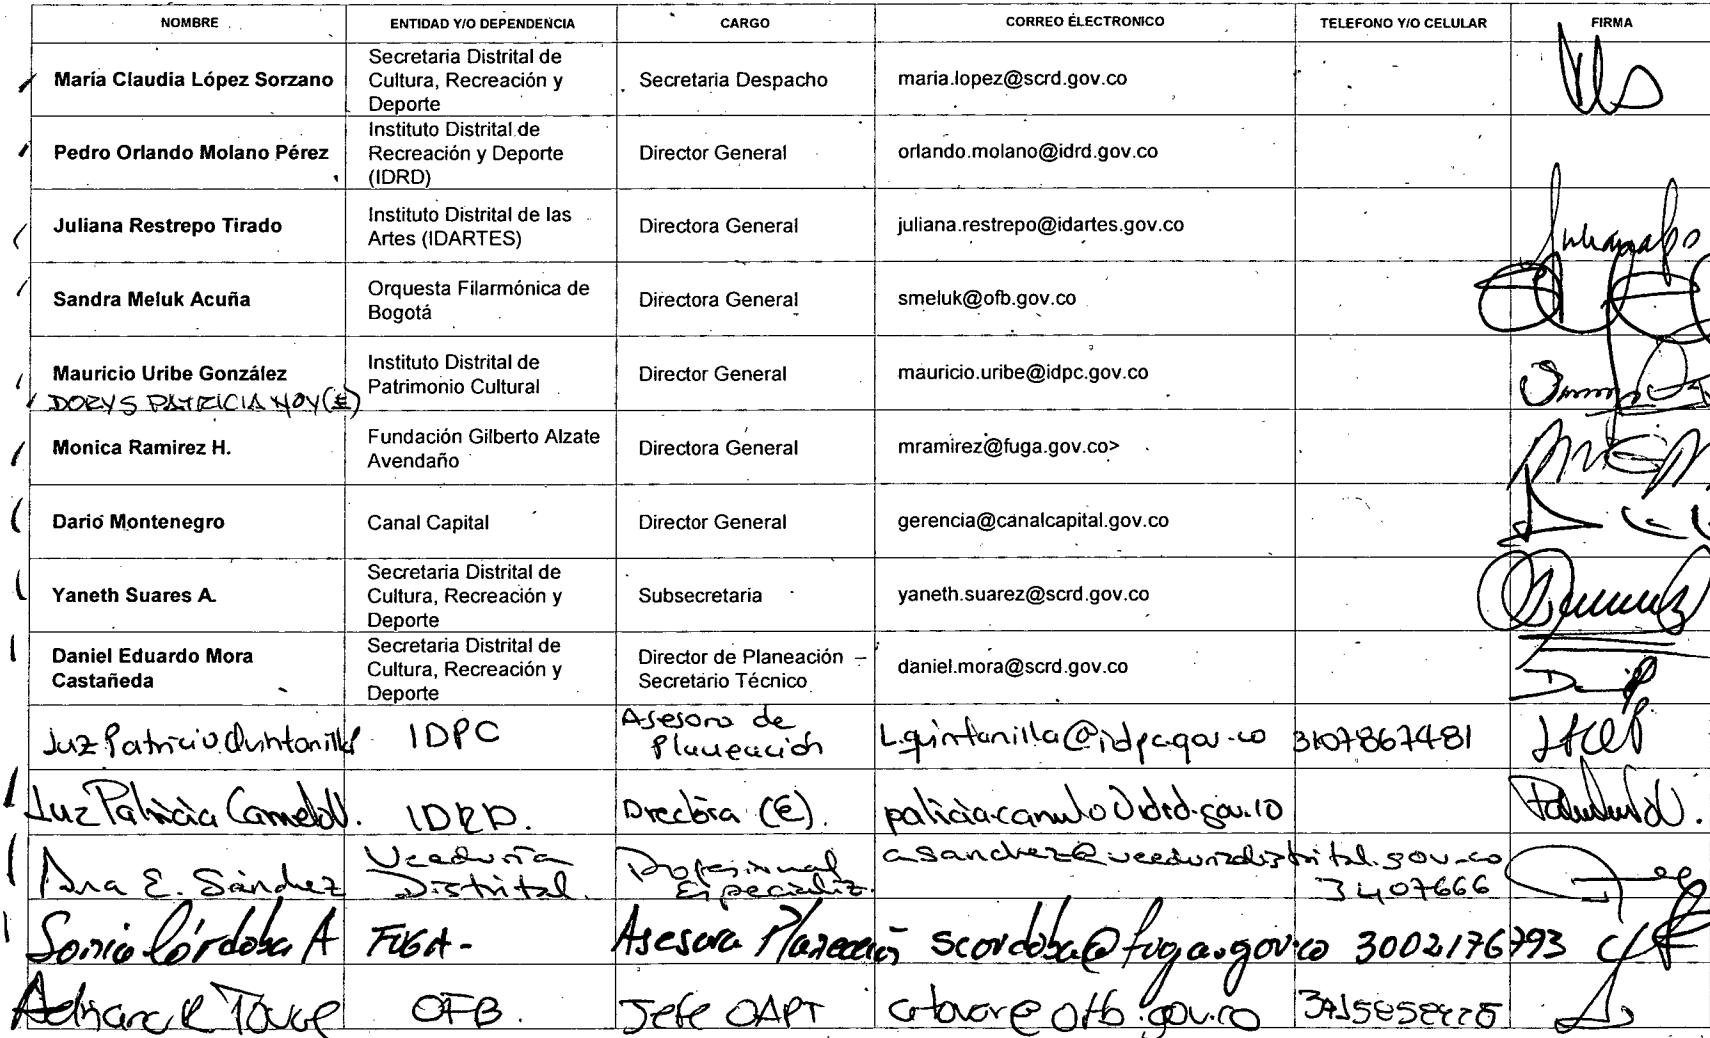 NOMBRE ENTIDAD Y/O DEPENDENCIA CARGO CORREO ELECTRONICO TELEFONO Y/O CELULAR FIRMA
María Claudia López Sorzano Secretaria Distrital de Cultura, Recreación y Deporte Secretaria Despacho maria.lopez@scrd.gov.co
Pedro Orlando Molano Pérez Instituto Distrital de Recreación y Deporte (IDRD) Director General orlando.molano@idrd.gov.co
Juliana Restrepo Tirado Instituto Distrital de las Artes (IDARTES) Directora General juliana.restrepo@idartes.gov.co
Sandra Meluk Acuña Orquesta Filarmónica de Bogotá Directora General smeluk@ofb.gov.co
Mauricio Uribe González Instituto Distrital de Patrimonio Cultural Director General mauricio.uribe@idpc.gov.co
DORYS PATRICIA NOY (E)
Monica Ramirez H. Fundación Gilberto Alzate Avendaño Directora General mramirez@fuga.gov.co>
Dario Montenegro Canal Capital Director General gerencia@canalcapital.gov.co
Yaneth Suares A. Secretaria Distrital de Cultura, Recreación y Deporte Subsecretaria yaneth.suarez@scrd.gov.co
Daniel Eduardo Mora Castañeda Secretaria Distrital de Cultura, Recreación y Deporte Director de Planeación – Secretario Técnico daniel.mora@scrd.gov.co
Luz Patricia Quintanilla IDPC Asesora de Planeación L.quintanilla@idpc.gov.co 3107867481
Luz Patricia Camelo U. IDRD. Directora (E). patricia.camelo@idrd.gov.co
Ana E. Sánchez Veeduría Distrital. Profesional Especializ. asanchez@veeduriadistrital.gov.co 3407666
Sonia Córdoba A FUGA- Asesora Planeación scordoba@fuga.gov.co 3002176793
Adriana Tovar OFB. Jefe OAPT atovar@ofb.gov.co